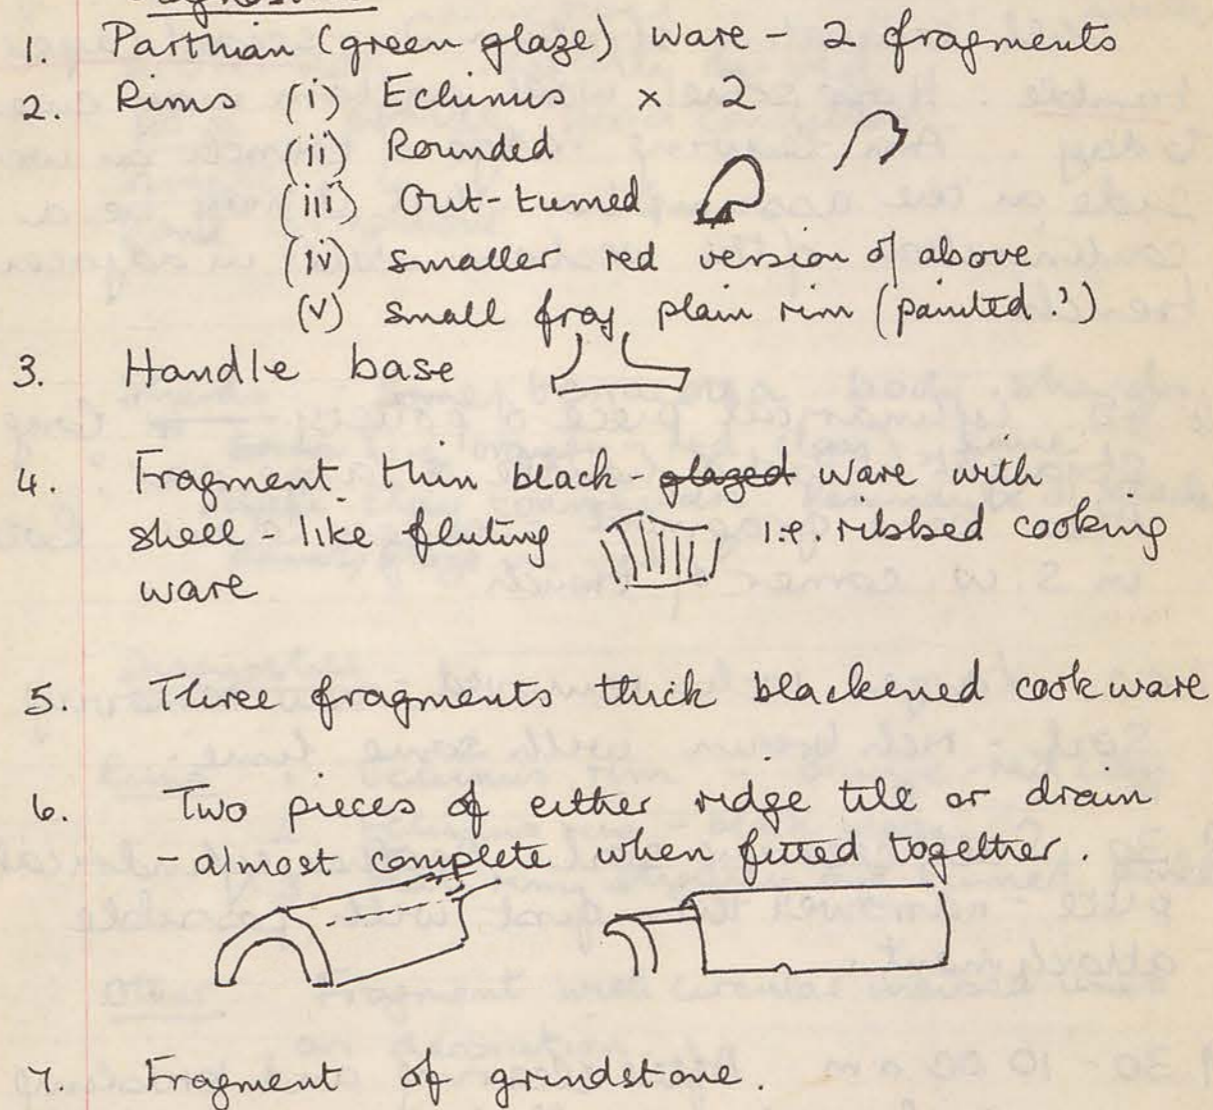 1. Parthian (green glaze) ware - 2 fragments
2. Rims (i) Echinus x 2
(ii) Rounded
(iii) Out-turned
(iv) smaller red version of above
(v) small frag plain rim (painted?)
3. Handle base
4. Fragment thin black - glazed ware with
shell-like fluting i.e. ribbed cooking
ware
5. Three fragments thick blackened cookware
6. Two pieces of either ridge tile or drain
- almost complete when fitted together.
7. Fragment of grindstone.